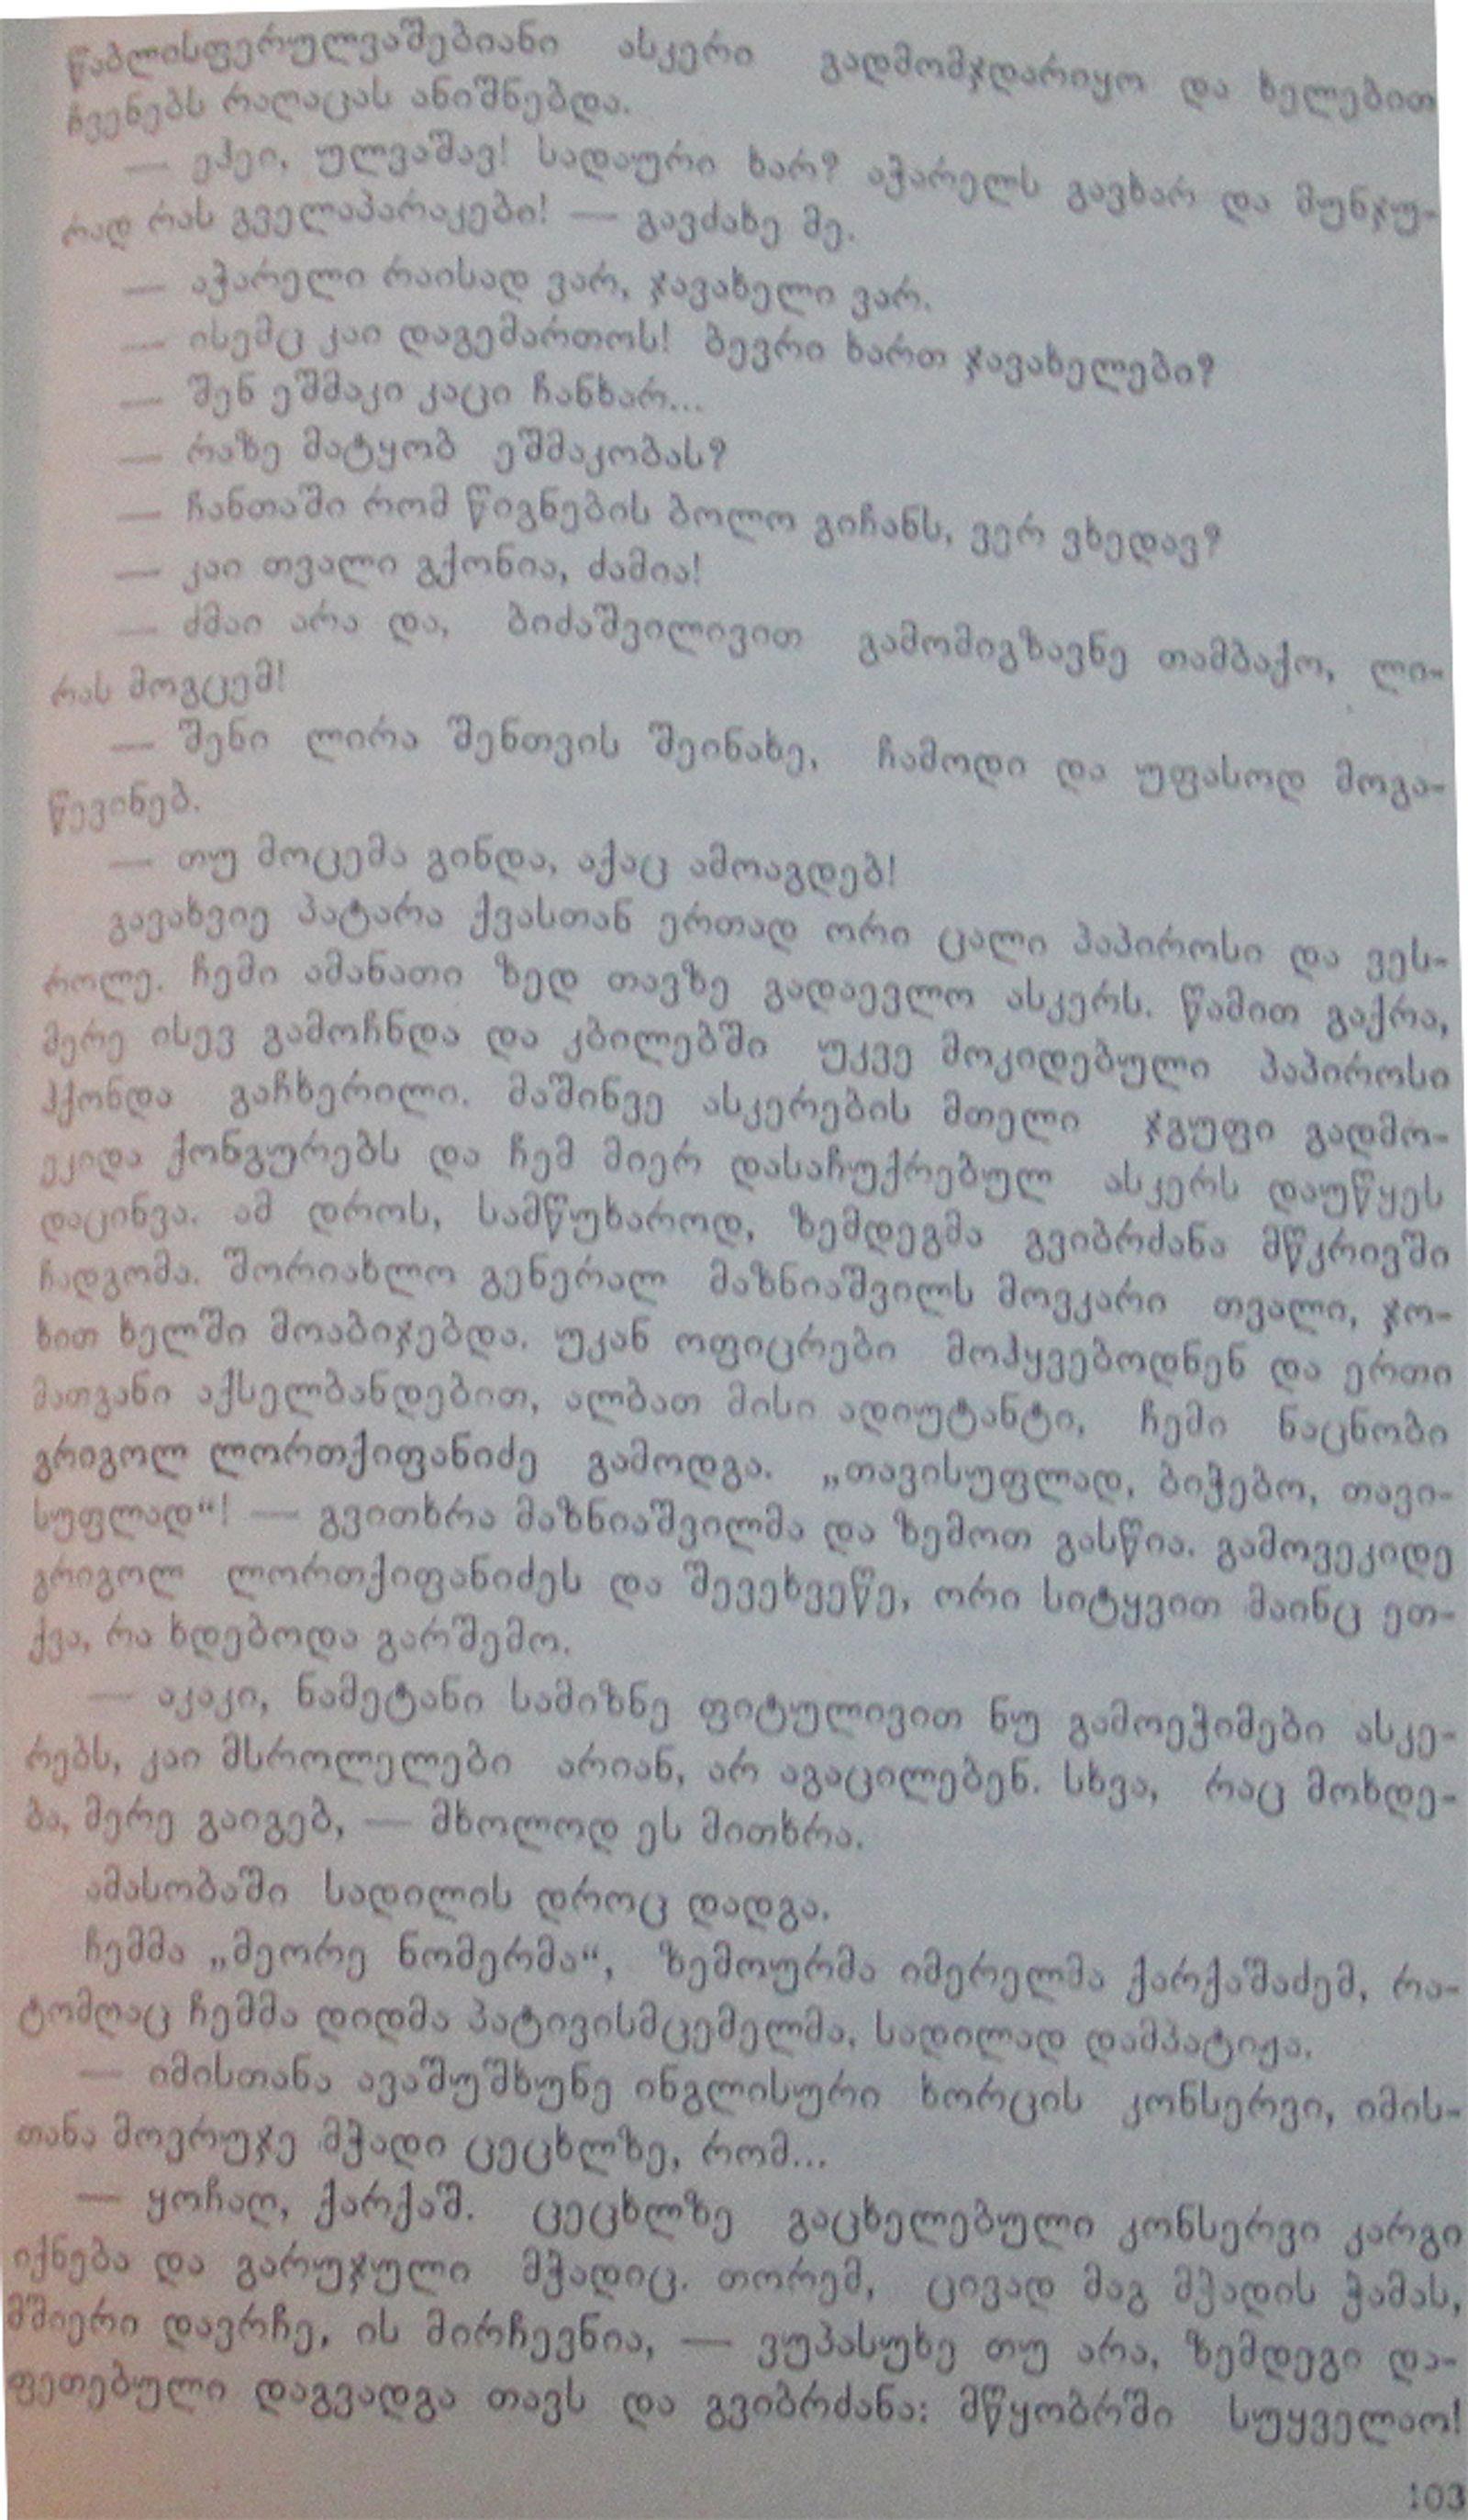 წაბლისფერულვაშებიანი ასკერი გადმომჯდარიყო და ხელებით
ჩვენებს რაღაცას ანიშნებდა.
— ეჰეი, ულვაშავ! სადაური ხარ? აჭარელს გავხარ და მუნჯუ-
რად რას გველაპარაკები! — გავძახე მე.
— აჭარელი რაისად ვარ, ჯავახელი ვარ.
— ისემც კაი დაგემართოს! ბევრი ხართ ჯავახელები?
— შენ ეშმაკი კაცი ჩანხარ...
— რაზე მატყობ ეშმაკობას?
— ჩანთაში რომ წიგნების ბოლო გიჩანს, ვერ ვხედავ?
— კაი თვალი გქონია, ძამია!
— ძმაი არა და, ბიძაშვილივით გამომიგზავნე თამბაქო, ლი-
რას მოგცემ!
— შენი ლირა შენთვის შეინახე, ჩამოდი და უფასოდ მოგა-
წევინებ.
— თუ მოცემა გინდა, აქაც ამოაგდებ!
გავახვიე პატარა ქვასთან ერთად ორი ცალი პაპიროსი და ვეს-
როლე. ჩემი ამანათი ზედ თავზე გადაევლო ასკერს. წამით გაქრა,
მერე ისევ გამოჩნდა და კბილებში უკვე მოკიდებული პაპიროსი
ჰქონდა გაჩხერილი. მაშინვე ასკერების მთელი ჯგუფი გადმო-
ეკიდა ქონგურებს და ჩემ მიერ დასაჩუქრებულ ასკერს დაუწყეს
დაცინვა. ამ დროს, სამწუხაროდ, ზემდეგმა გვიბრძანა მწკრივში
ჩადგომა. შორიახლო გენერალ მაზნიაშვილს მოვკარი თვალი, ჯო-
ხით ხელში მოაბიჯებდა. უკან ოფიცრები მოჰყვებოდნენ და ერთი
მათგანი აქსელბანდებით, ალბათ მისი ადიუტანტი, ჩემი ნაცნობი
გრიგოლ ლორთქიფანიძე გამოდგა. „თავისუფლად, ბიჭებო, თავი-
სუფლად“! — გვითხრა მაზნიაშვილმა და ზემოთ გასწია. გამოვეკიდე
გრიგოლ ლორთქიფანიძეს და შევეხვეწე, ორი სიტყვით მაინც ეთ-
ქვა, რა ხდებოდა გარშემო.
— აკაკი, ნამეტანი სამიზნე ფიტულივით ნუ გამოეჭიმები ასკე-
რებს, კაი მსროლელები არიან, არ აგაცილებენ. სხვა, რაც მოხდე-
ბა, მერე გაიგებ, — მხოლოდ ეს მითხრა.
ამასობაში სადილის დროც დადგა.
ჩემმა „მეორე ნომერმა“, ზემოურმა იმერელმა ქარქაშაძემ, რა-
ტომღაც ჩემმა დიდმა პატივისმცემელმა, სადილად დამპატიჟა.
— იმისთანა ავაშუშხუნე ინგლისური ხორცის კონსერვი, იმის-
თანა მოვრუჯე მჭადი ცეცხლზე, რომ...
— ყოჩაღ, ქარქაშ. ცეცხლზე გაცხელებული კონსერვი კარგი
იქნება და გარუჯული მჭადიც. თორემ, ცივად მაგ მჭადის ჭამას,
მშიერი დავრჩე, ის მირჩევნია, — ვუპასუხე თუ არა, ზემდეგი და-
ფეთებული დაგვადგა თავს და გვიბრძანა: მწყობრში სუყველაო!
103